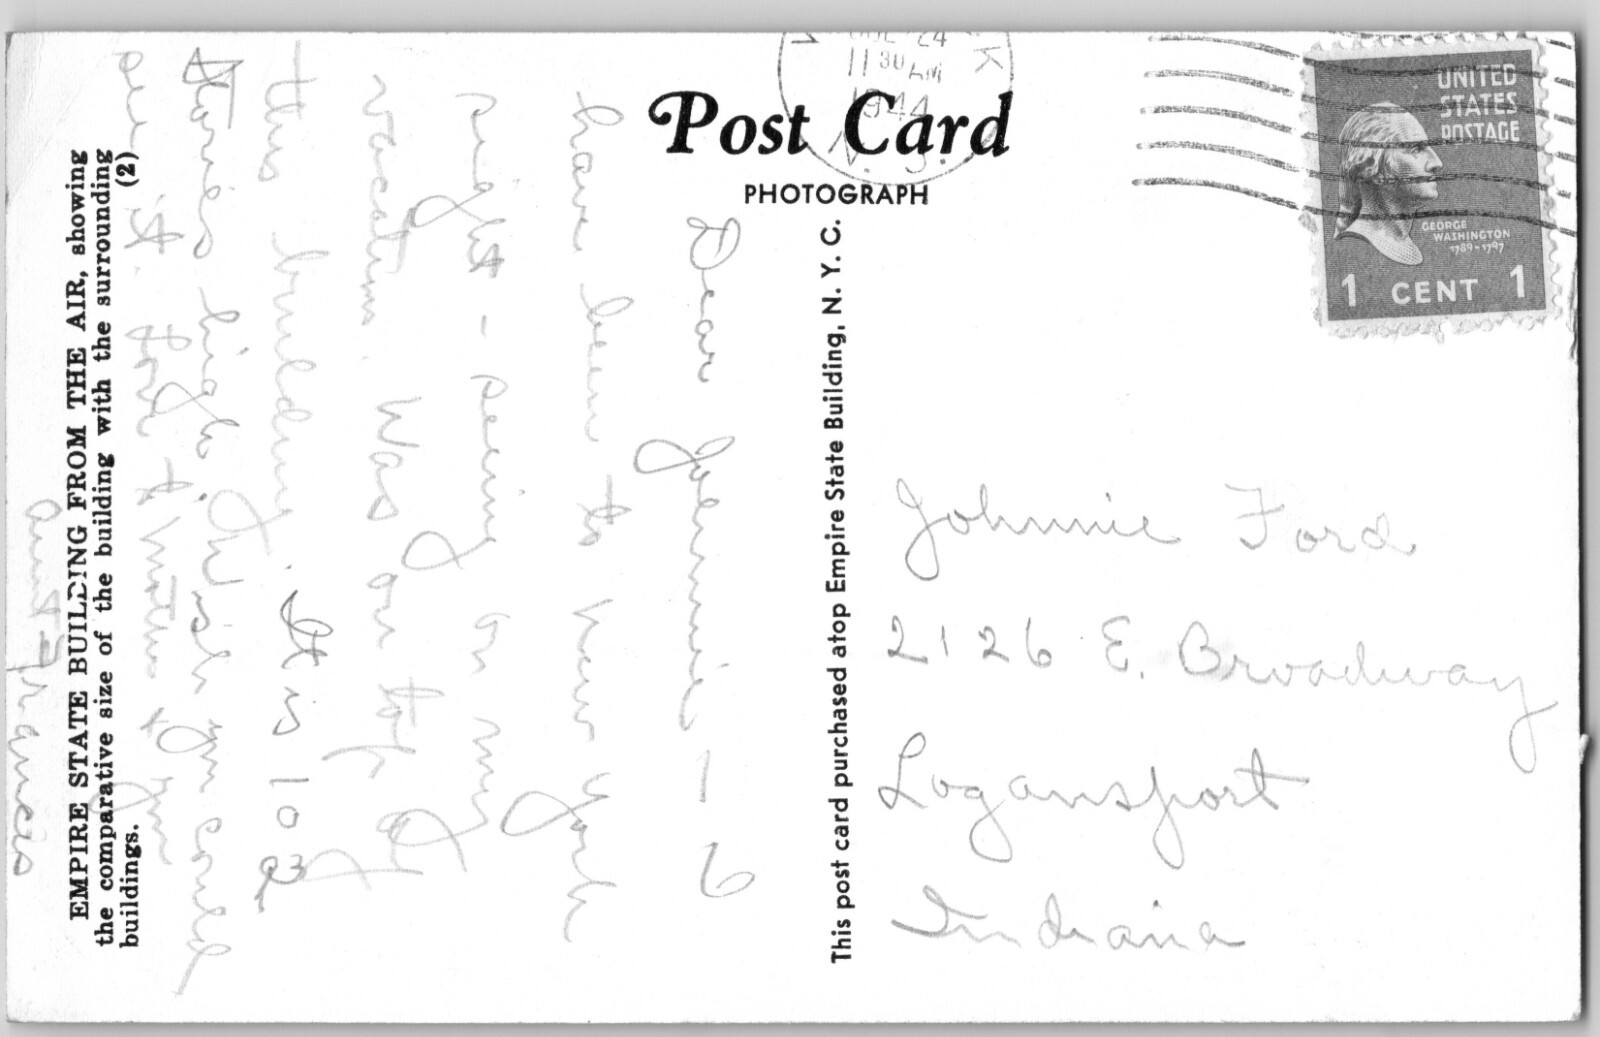 Post Card
PHOTOGRAPH
24
11 30 AM
1944
N. J.
UNITED
STATES
POSTAGE
GEORGE
WASHINGTON
1789-1797
1 CENT 1
EMPIRE STATE BUILDING FROM THE AIR, showing
the comparative size of the building with the surrounding
buildings. (2)
Dear Johnnie - I
have been to New York
sight-seeing on my
vacation. Was on top of
this building. It is 102
stories high. Wish you could
see it. Love to Mother & you
Aunt Frances
This post card purchased atop Empire State Building, N. Y. C.
Johnnie Ford
2126 E. Broadway
Logansport
Indiana